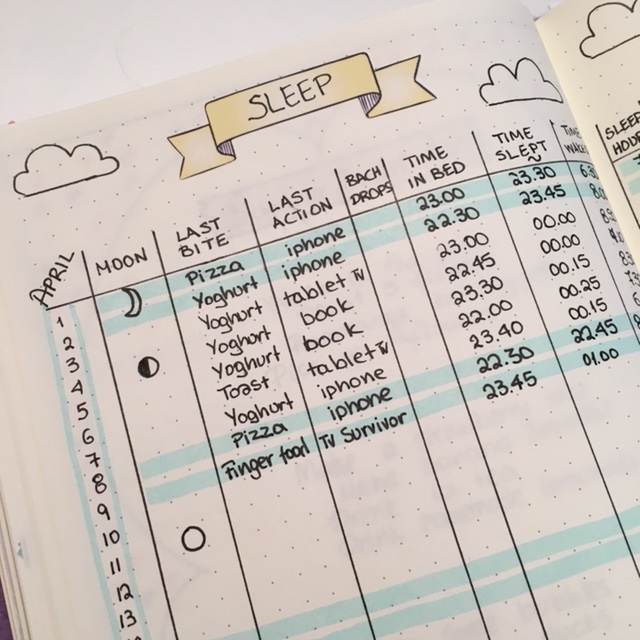 SLEEP
APRIL MOON LAST BITE LAST ACTION BACH DROPS TIME IN BED TIME SLEPT
1 Pizza iphone 23.00 23.30
2 Yoghurt iphone 22.30 23.45
3 Yoghurt tablet TV 23.00 00.00
4 Yoghort book 22.45 00.00
5 Yoghurt book 23.30 00.15
6 Toast tablet TV 22.00 00.25
7 Yoghurt iphone 23.40 00.15
8 Pizza iphone 22.30 22.45
9 Finger food TV Survivor 23.45 01.00
10
11
12
13